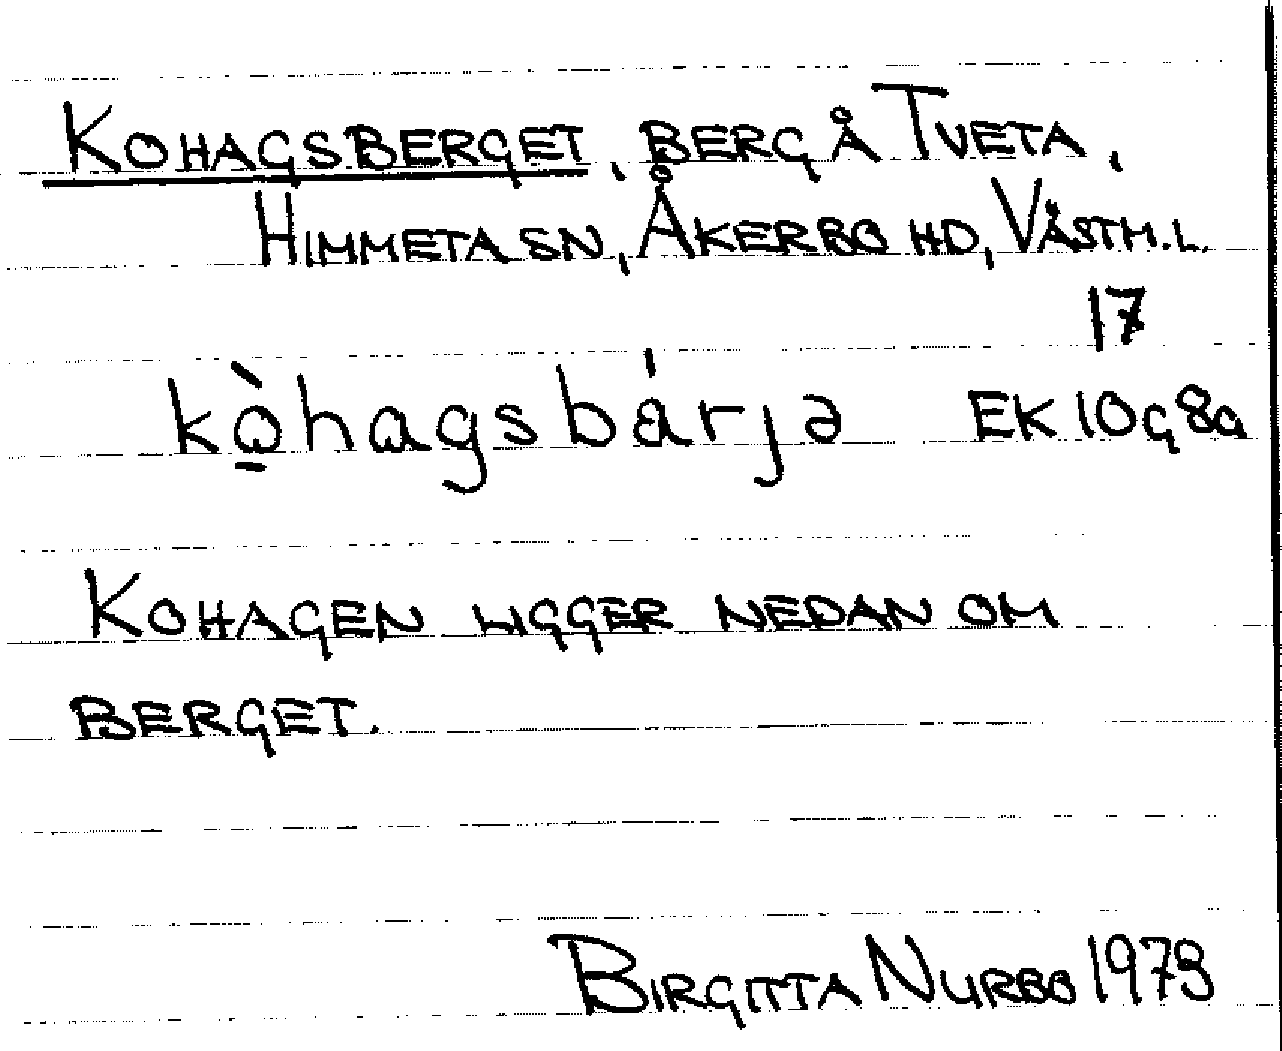 KOHAGSBERGET, BERG Å TVETA,
HIMMETA SN, ÅKERBO HD, VÄSTM.L.
17
kò̠hagsbárjə EK 10G8a
KOHAGEN LIGGER NEDAN OM
BERGET.
BIRGITTA NURBO 1973